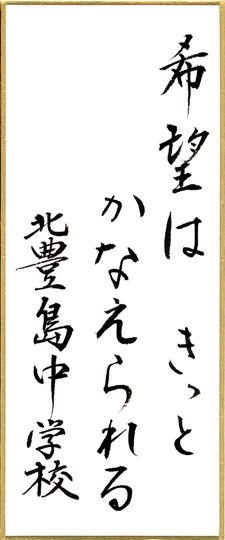 希望は きっと
かなえられる
北豊島中学校